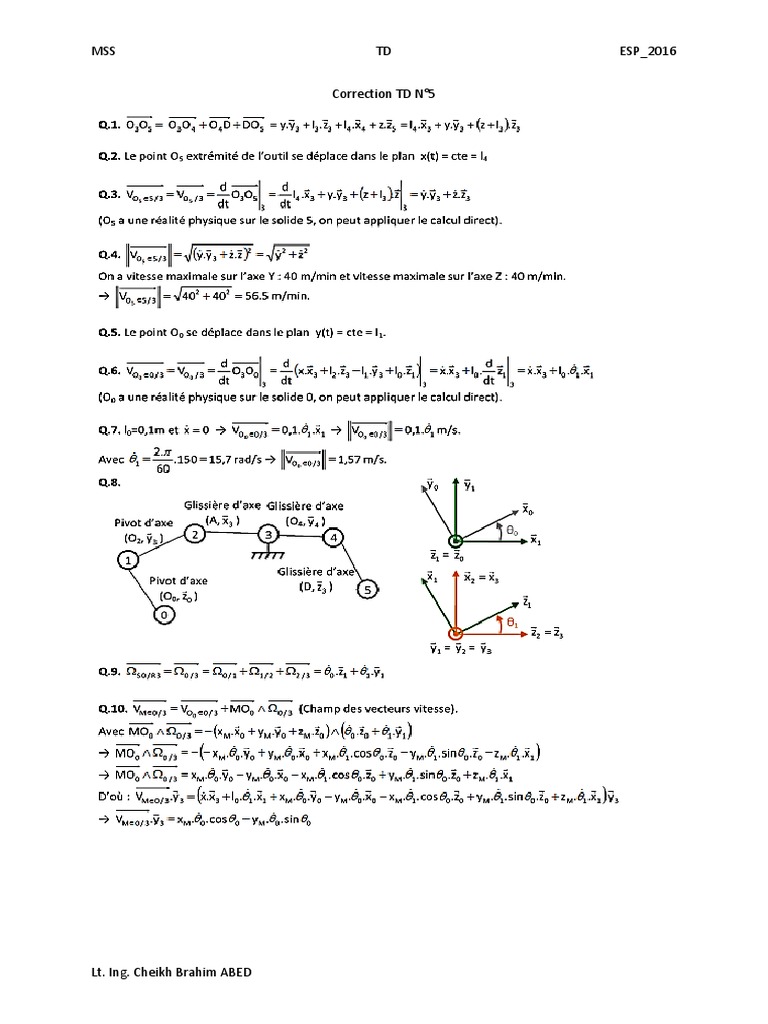 MSS TD ESP_2016
Correction TD N°5
Q.1. O₃O₅ = O₃O₄ + O₄D + DO₅ = y.y₃ + l₃.z₃ + l₄.x₄ + z.z₅ = l₄.x₃ + y.y₃ + (z + l₃).z₃
Q.2. Le point O₅ extrémité de l'outil se déplace dans le plan x(t) = cte = l₄
Q.3. V_O₅∈5/3 = V_O₅/3 = d/dt O₃O₅|₃ = d/dt l₄.x₃ + y.y₃ + (z + l₃).z|₃ = ẏ.y₃ + ż.z₃
(O₅ a une réalité physique sur le solide 5, on peut appliquer le calcul direct).
Q.4. ‖V_O₅∈5/3‖ = √(ẏ.y₃ + ż.z)² = √ẏ² + ż²
On a vitesse maximale sur l'axe Y : 40 m/min et vitesse maximale sur l'axe Z : 40 m/min.
→ ‖V_O₅∈5/3‖ = √40² + 40² = 56.5 m/min.
Q.5. Le point O₀ se déplace dans le plan y(t) = cte = l₁.
Q.6. V_O₀∈0/3 = V_O₀/3 = d/dt O₃O₀|₃ = d/dt (x.x₃ + l₂.z₃ − l₁.y₃ + l₀.z₁)|₃ = ẋ.x₃ + l₀. d/dt z₁|₃ = ẋ.x₃ + l₀.θ̇₁.x₁
(O₀ a une réalité physique sur le solide 0, on peut appliquer le calcul direct).
Q.7. l₀=0,1m et ẋ = 0 → V_O₀∈0/3 = 0,1.θ̇₁.x₁ → ‖V_O₀∈0/3‖ = 0,1.θ̇₁ m/s.
Avec θ̇₁ = 2.π/60 .150 = 15,7 rad/s → ‖V_O₀∈0/3‖ = 1,57 m/s.
Q.8.
Glissière d'axe Glissière d'axe
Pivot d'axe (A, x₃ ) (O₄, y₄ )
(O₂, y₃ ) 2 3 4
1
Glissière d'axe
Pivot d'axe (D, z₃ )
(O₀, z₀ ) 5
0
y₀ y₁
x₀
θ₀
x₁
z₁ = z₀
x₁ x₂ = x₃
z₁
θ₁
z₂ = z₃
y₁ = y₂ = y₃
Q.9. Ω_S0/R3 = Ω_0/3 = Ω_0/1 + Ω_1/2 + Ω_2/3 = θ̇₀.z₁ + θ̇₁.y₁
Q.10. V_M∈0/3 = V_O₀∈0/3 + MO₀ ∧ Ω_0/3 (Champ des vecteurs vitesse).
Avec MO₀ ∧ Ω_0/3 = −(x_M.x₀ + y_M.y₀ + z_M.z₀) ∧ (θ̇₀.z₀ + θ̇₁.y₁)
→ MO₀ ∧ Ω_0/3 = −(− x_M.θ̇₀.y₀ + y_M.θ̇₀.x₀ + x_M.θ̇₁.cosθ₀.z₀ − y_M.θ̇₁.sinθ₀.z₀ − z_M.θ̇₁.x₁)
→ MO₀ ∧ Ω_0/3 = x_M.θ̇₀.y₀ − y_M.θ̇₀.x₀ − x_M.θ̇₁.cosθ₀.z₀ + y_M.θ̇₁.sinθ₀.z₀ + z_M.θ̇₁.x₁
D'où : V_M∈0/3.y₃ = (ẋ.x₃ + l₀.θ̇₁.x₁ + x_M.θ̇₀.y₀ − y_M.θ̇₀.x₀ − x_M.θ̇₁.cosθ₀.z₀ + y_M.θ̇₁.sinθ₀.z₀ + z_M.θ̇₁.x₁).y₃
→ V_M∈0/3.y₃ = x_M.θ̇₀.cosθ₀ − y_M.θ̇₀.sinθ₀
Lt. Ing. Cheikh Brahim ABED